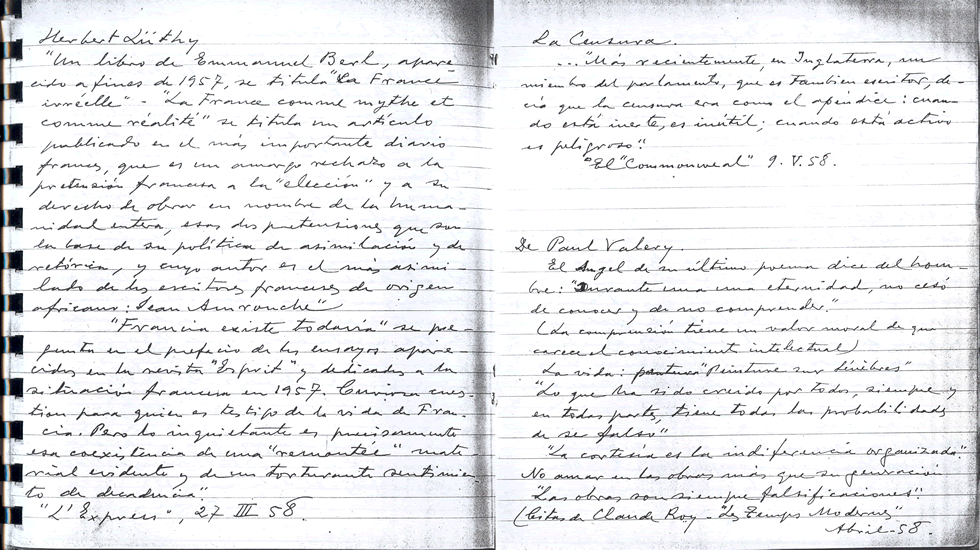 Herbert Lüthy
"Un libro de Emmanuel Berl, apare-
cido a fines de 1957, se titula "La France
irréelle" - "La France comme mythe et
comme réalité" se titula un artículo
publicado en el más importante diario
frances, que es un amargo rechazo a la
pretensión francesa a la "elección" y a su
derecho de obrar en nombre de la huma-
nidad entera, esas dos pretensiones que son
la base de su política de asimilación y de
retórica, y cuyo autor es el más asimi-
lado de los escritores franceses de origen
africano: Jean Amrouche"
"Francia existe todavía" se pre-
gunta en el prefacio de los ensayos apare-
cidos en la revista "Esprit" y dedicados a la
situación francesa en 1957. Curiosa cues-
tion para quien es testigo de la vida de Fran-
cia. Pero lo inquietante es precisamente
esa coexistencia de una "remontée" mate-
rial evidente y de un torturante sentimien-
to de decadencia".
"L'Express", 27 III 58.
La Censura.
..."Más recientemente, en Inglaterra, un
miembro del parlamento, que es tambien escritor, de-
cía que la censura era como el apéndice: cuan-
do está inerte, es inútil; cuando está activo
es peligroso".
"El "Commonweal" 9. V. 58.
De Paul Valery.
El Angel de su último poema dice del hom-
bre: "Durante una una eternidad, no cesó
de conocer y de no comprender."
(La comprensión tiene un valor moral de que
carece el conocimiento intelectual)
La vida: "Peinture sur ténèbres"
"Lo que ha sido creido por todos, siempre y
en todas partes, tiene todas las probabilidades
de ser falso"
"La cortesía es la indiferencia organizada."
No amar en las obras más que su generación
"Las obras son siempre falsificaciones".
(Citas de Claude Roy - "Les Temps Modernes"
Abril - 58.